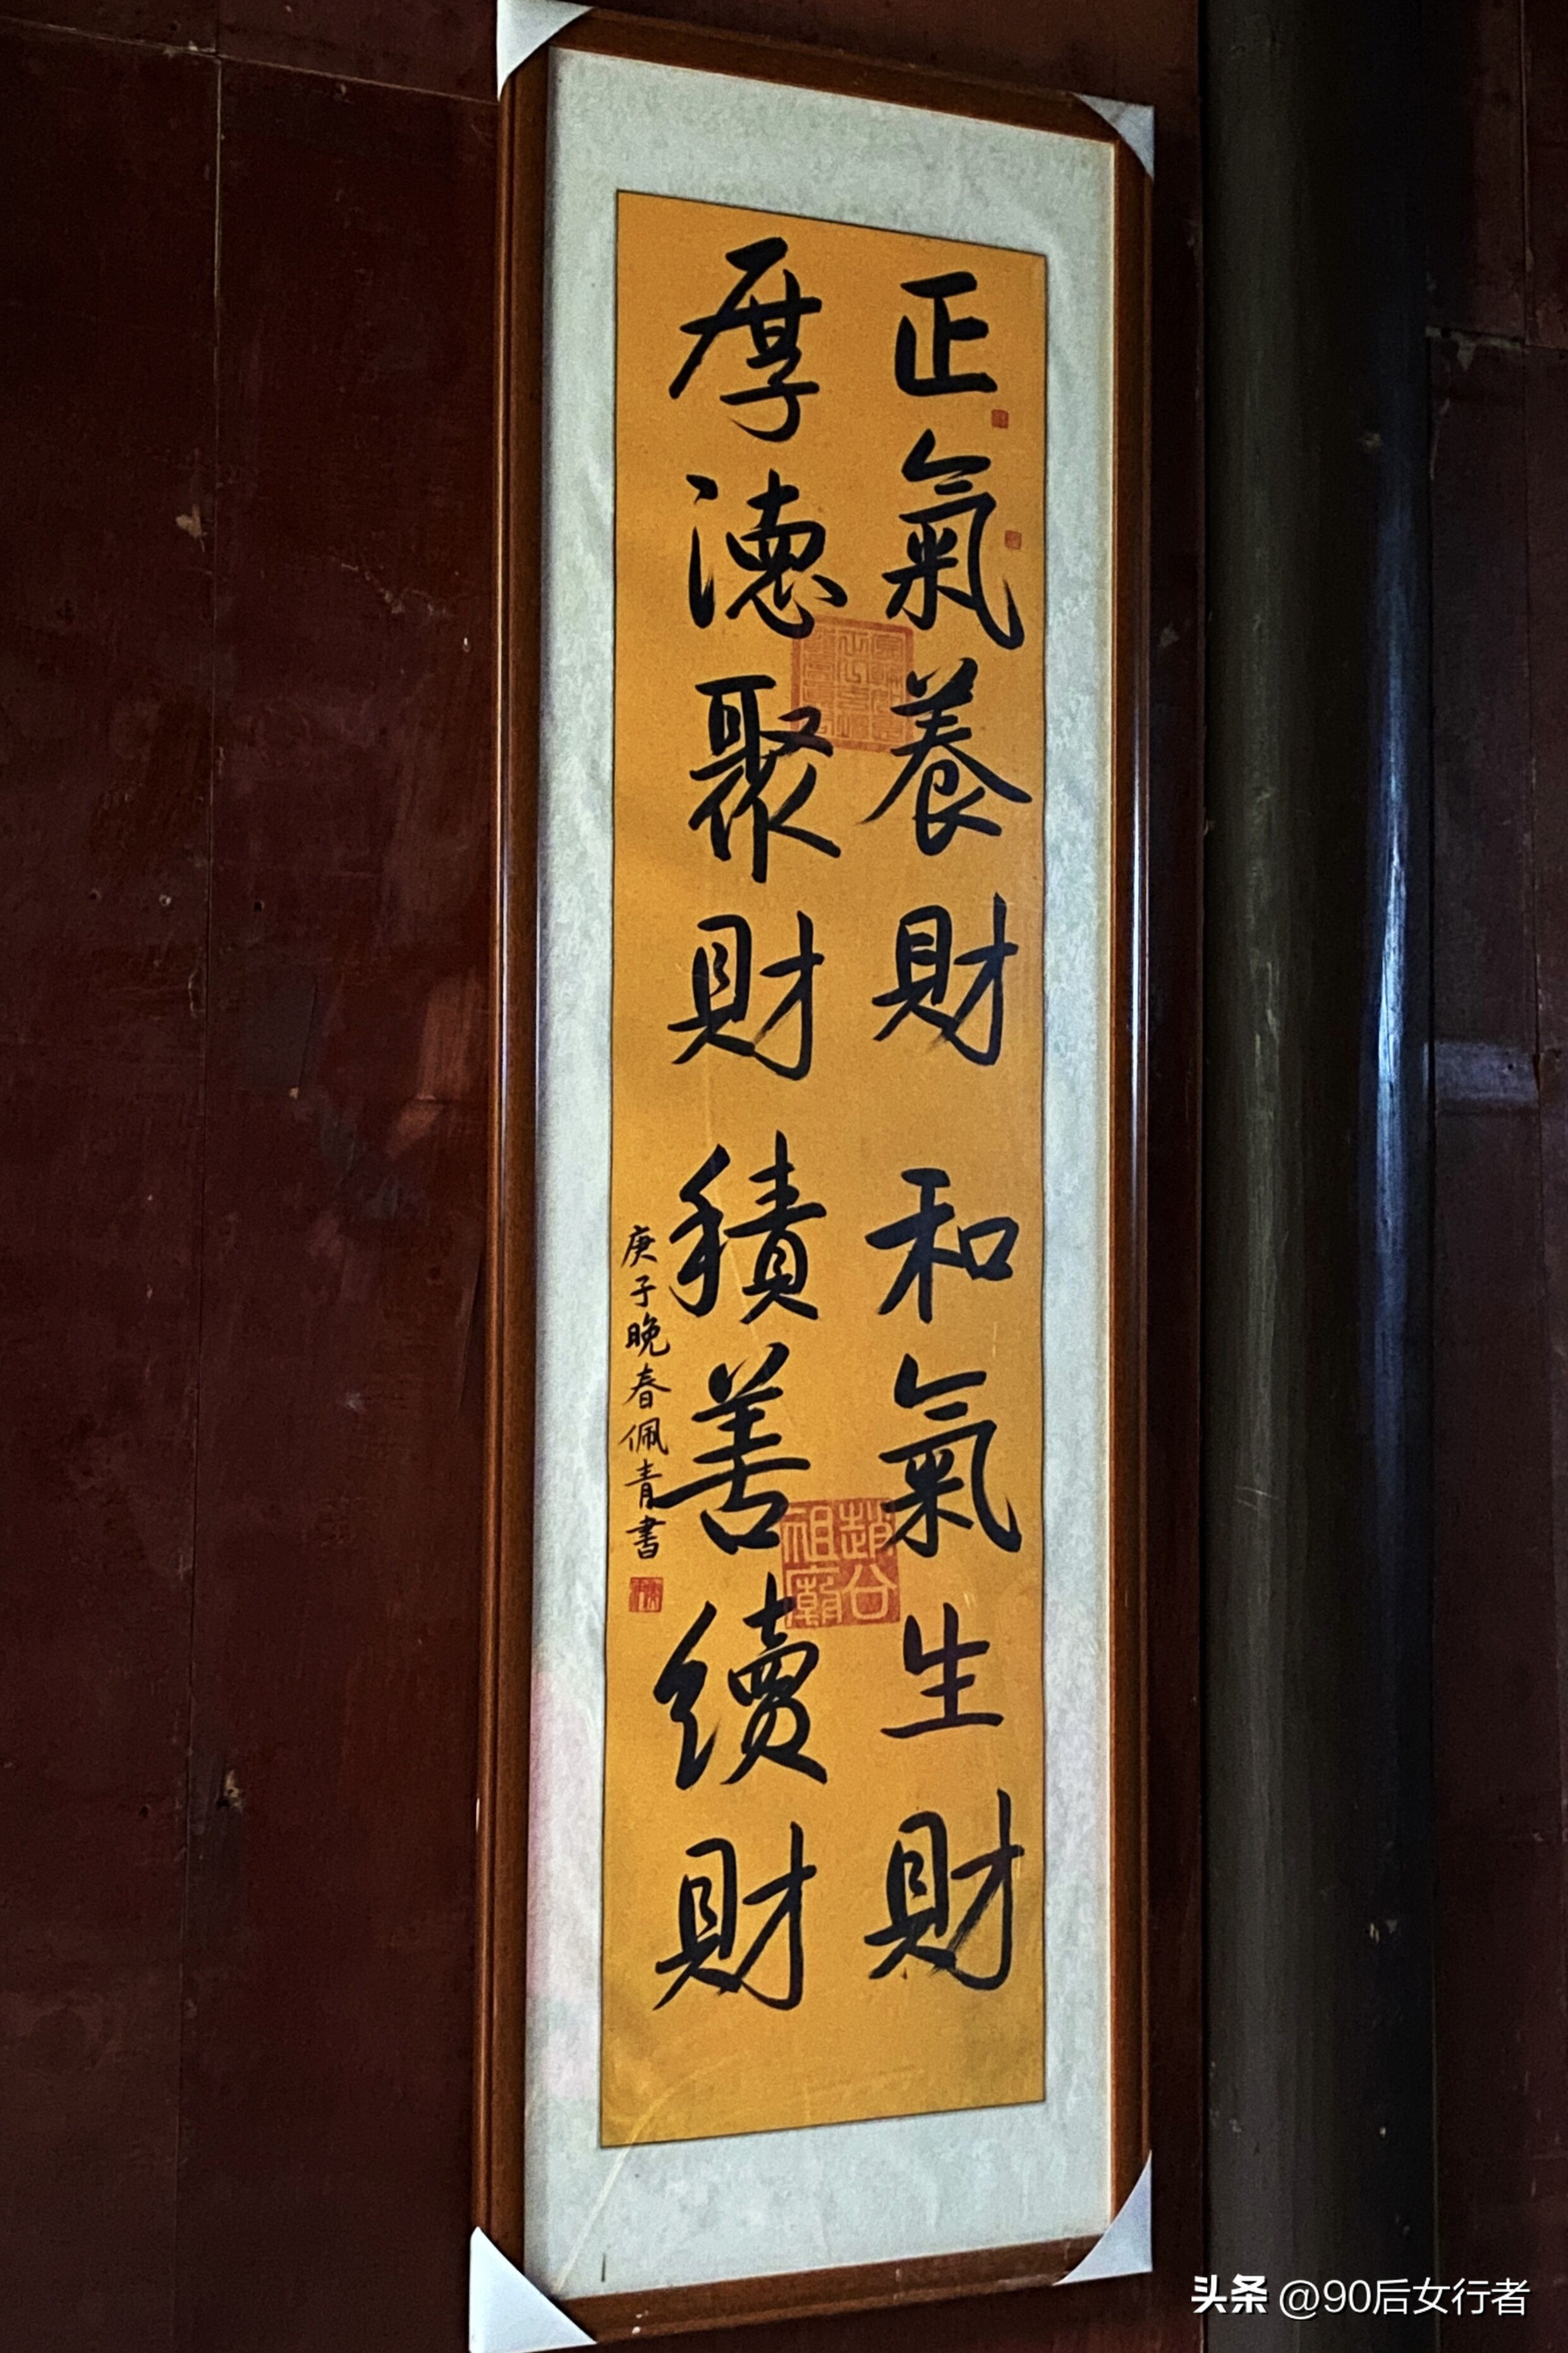 正氣養財 和氣生財
厚德聚財 積善續財
庚子晚春佩青書
趙公
祖廟
头条 @90后女行者